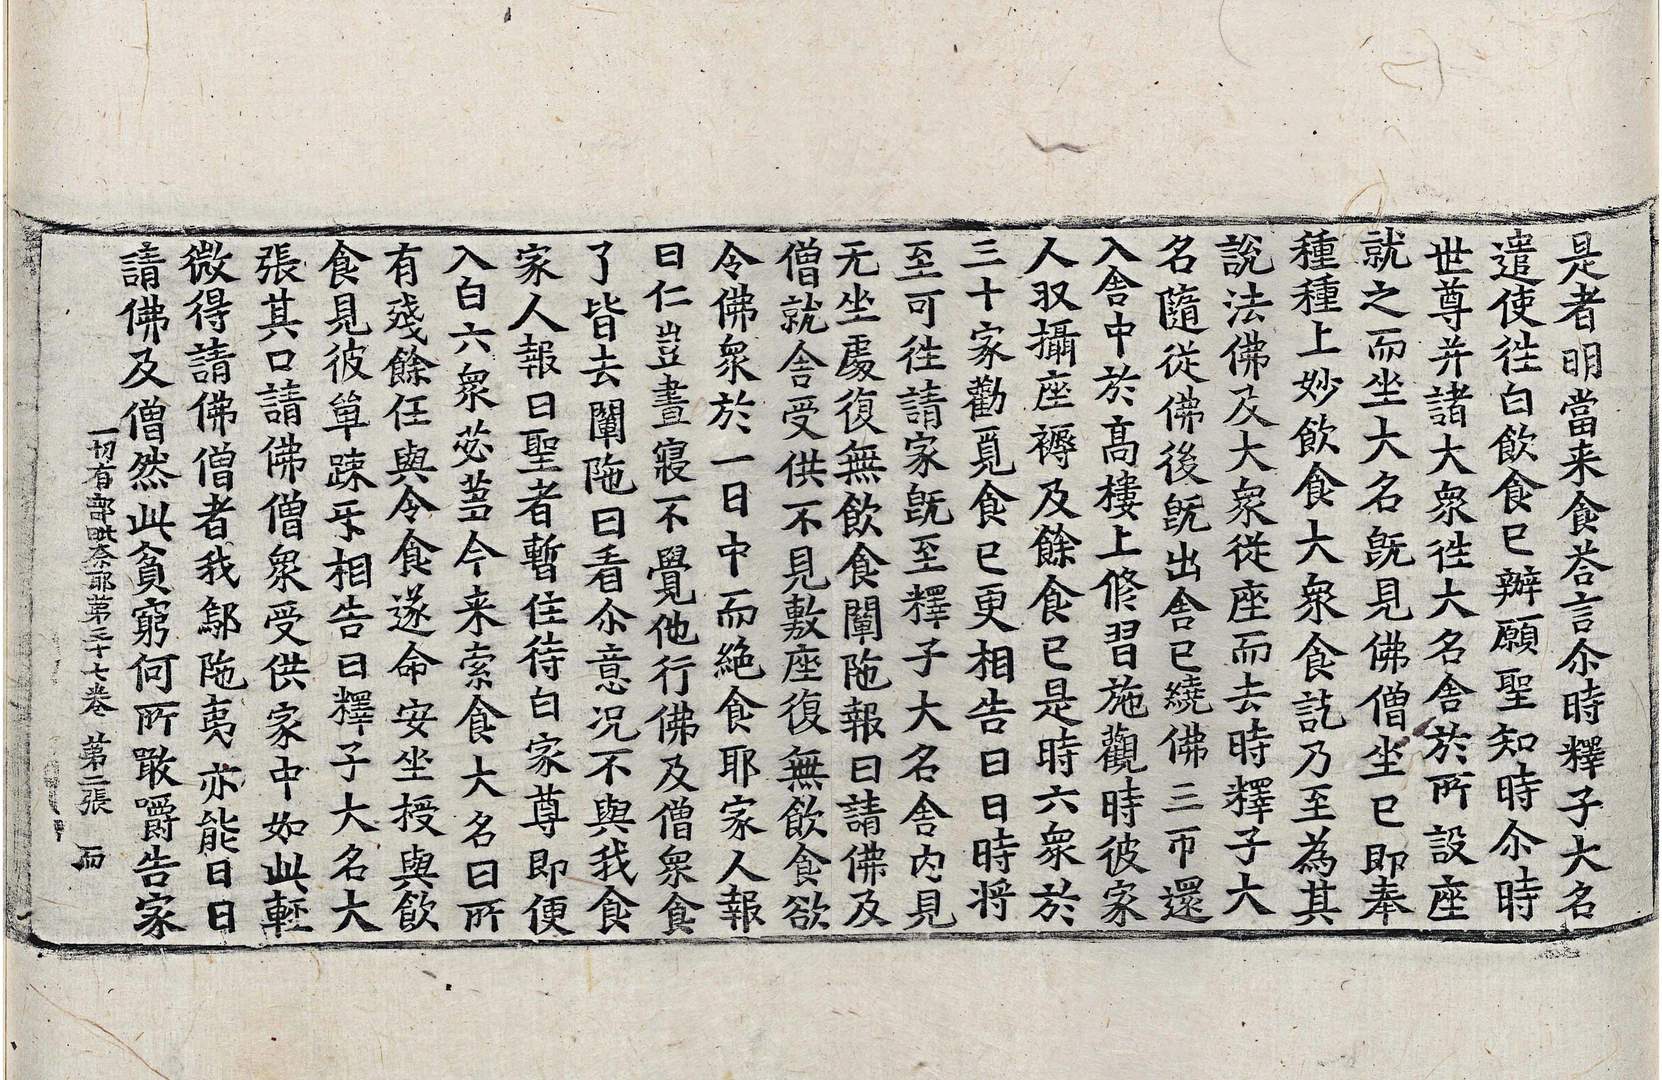 是者明當来食荅言尒時釋子大名
遣使徃白飲食已辦願聖知時尒時
世尊并諸大衆徃大名舍於所設座
就之而坐大名旣見佛僧坐已即奉
種種上妙飲食大衆食訖乃至為其
說法佛及大衆從座而去時釋子大
名隨從佛後旣出舍已繞佛三帀還
入舍中於高樓上修習施觀時彼家
人収攝座褥及餘食已是時六衆於
三十家勸覓食已更相告曰日時将
至可徃請家旣至釋子大名舍内見
无坐處復無飲食闡陁報曰請佛及
僧就舍受供不見敷座復無飲食欲
令佛衆於一日中而絶食耶家人報
曰仁豈晝寢不覺他行佛及僧衆食
了皆去闡陁曰看尒意况不與我食
家人報曰聖者暫住待白家尊即便
入白六衆苾蒭今来索食大名曰所
有殘餘任與令食遂命安坐授與飲
食見彼単踈㸦相告曰釋子大名大
張其口請佛僧衆受供家中如此輕
微得請佛僧者我鄔陁夷亦能日日
請佛及僧然此貧窮何所敢嚼告家
一切有部毗奈耶第三十七卷 第二張 而